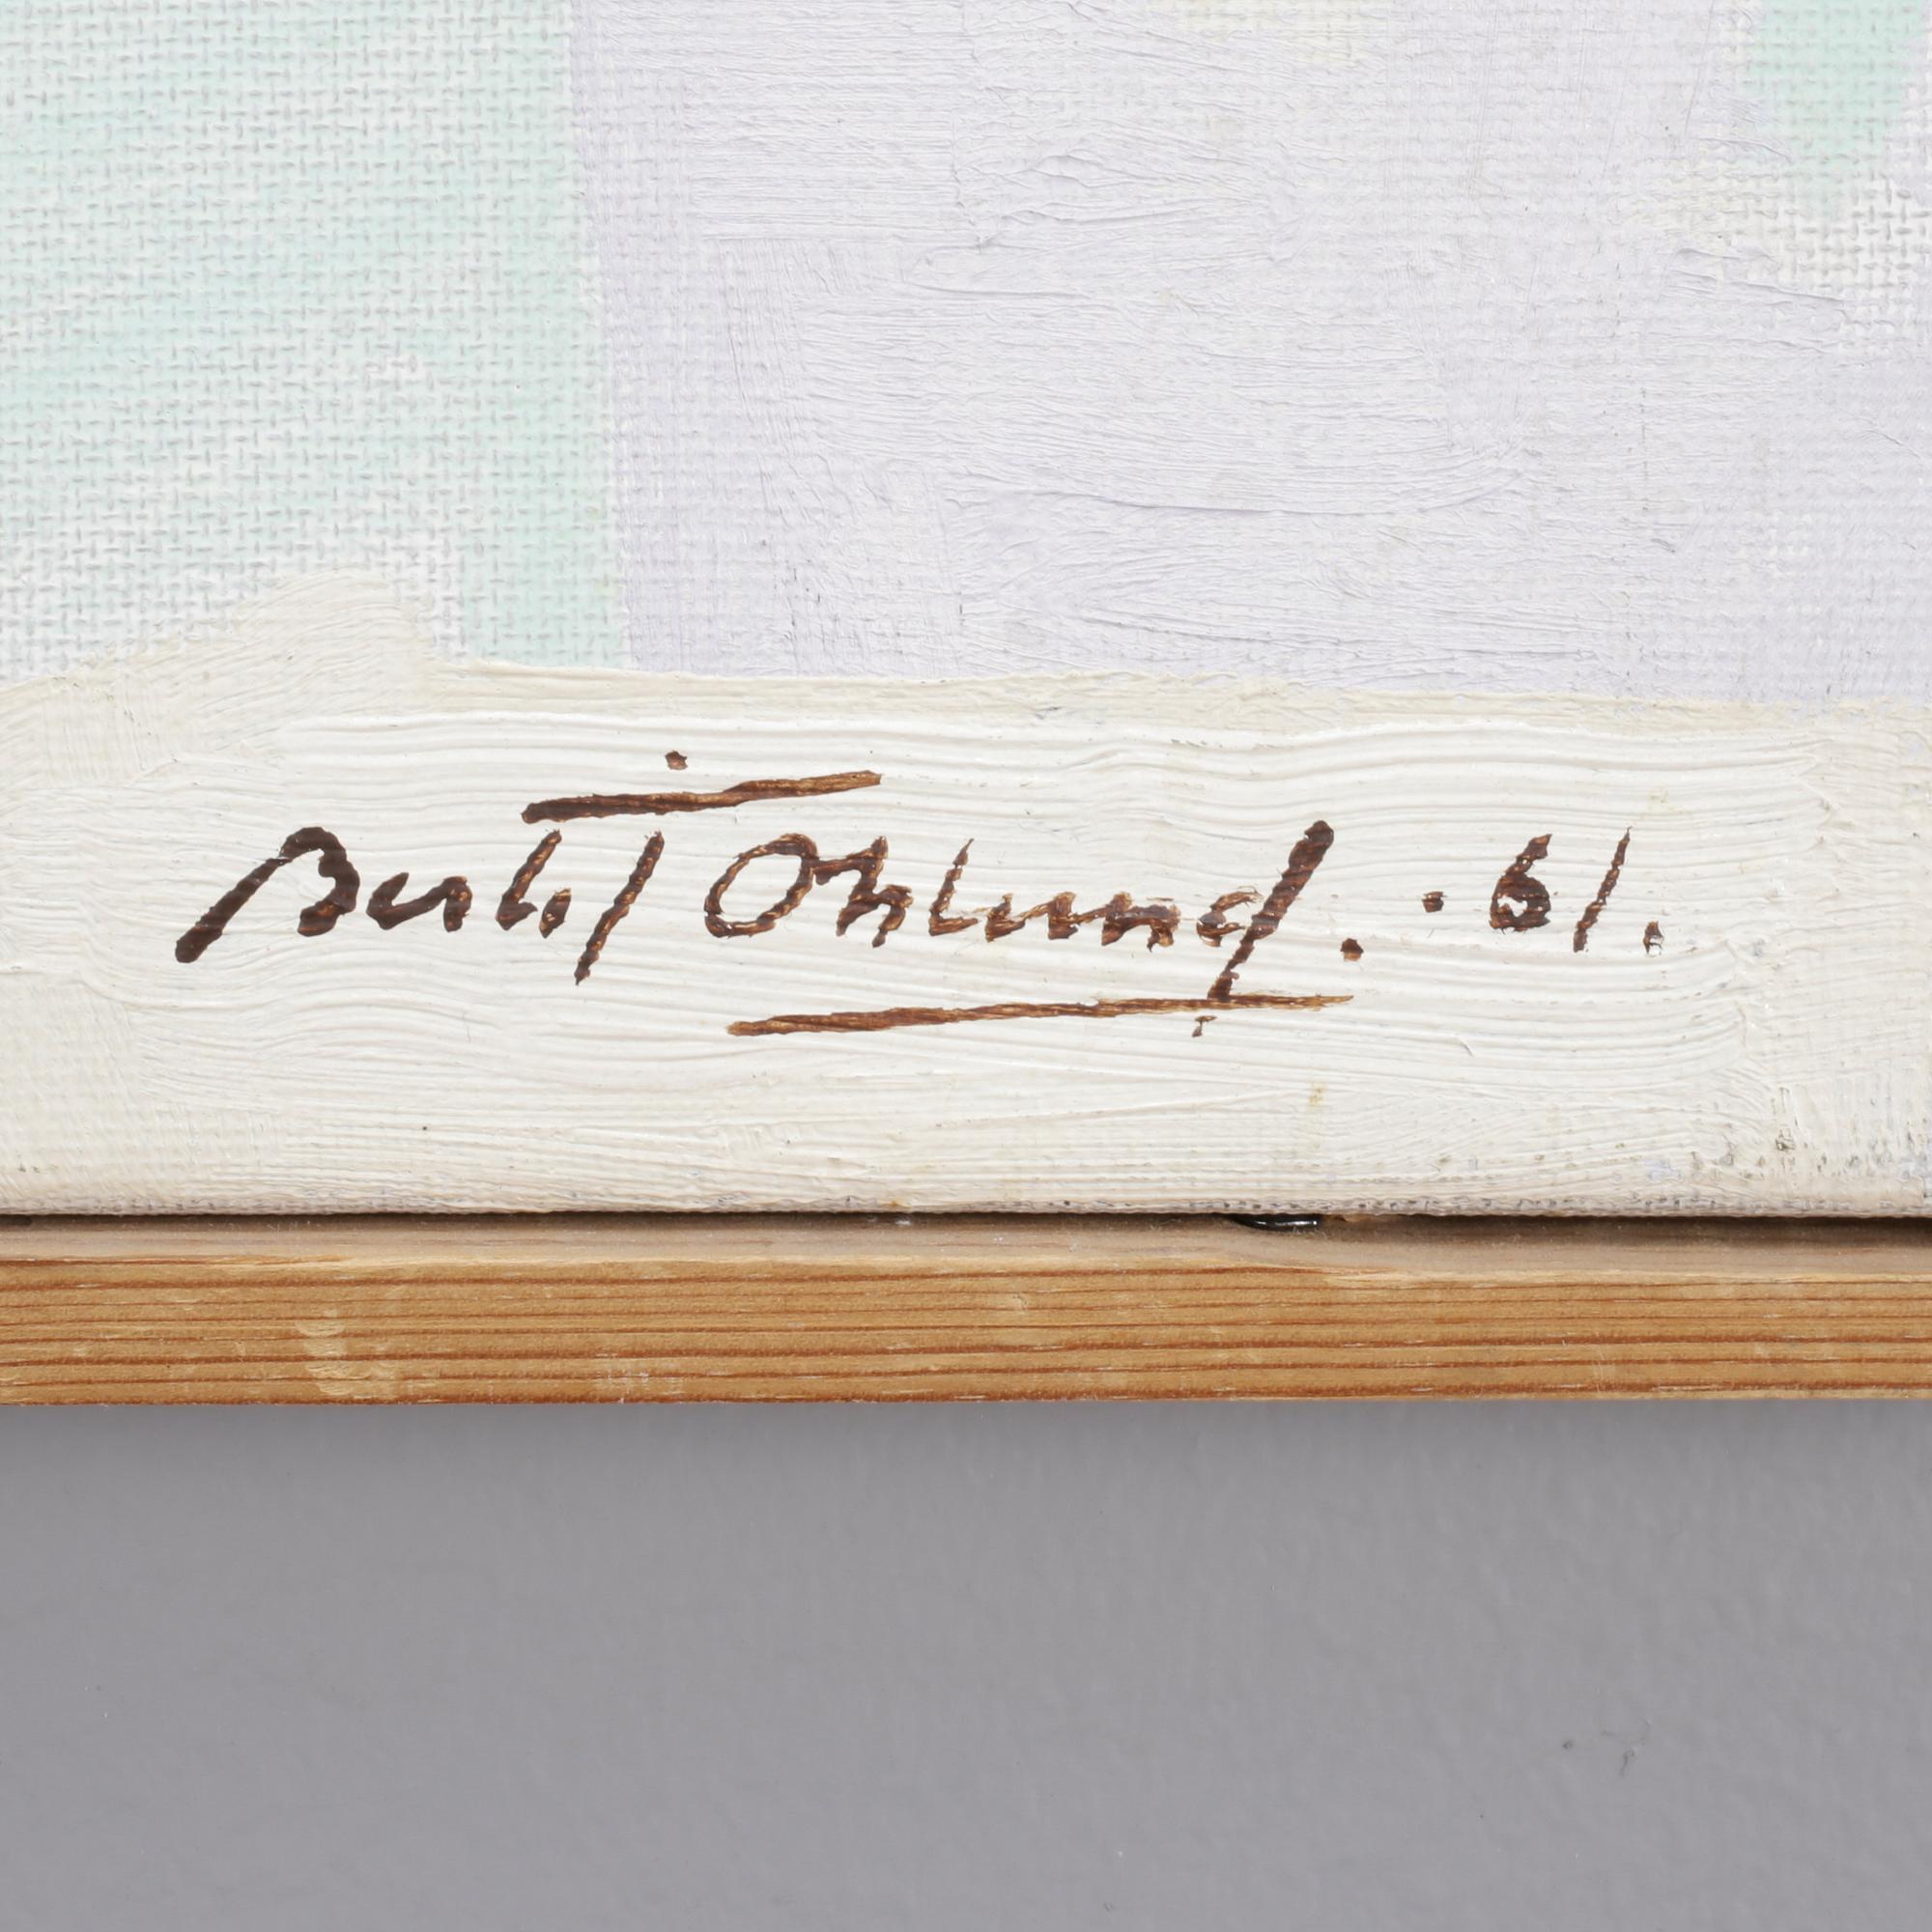 Bertil Öhlund. · 61.